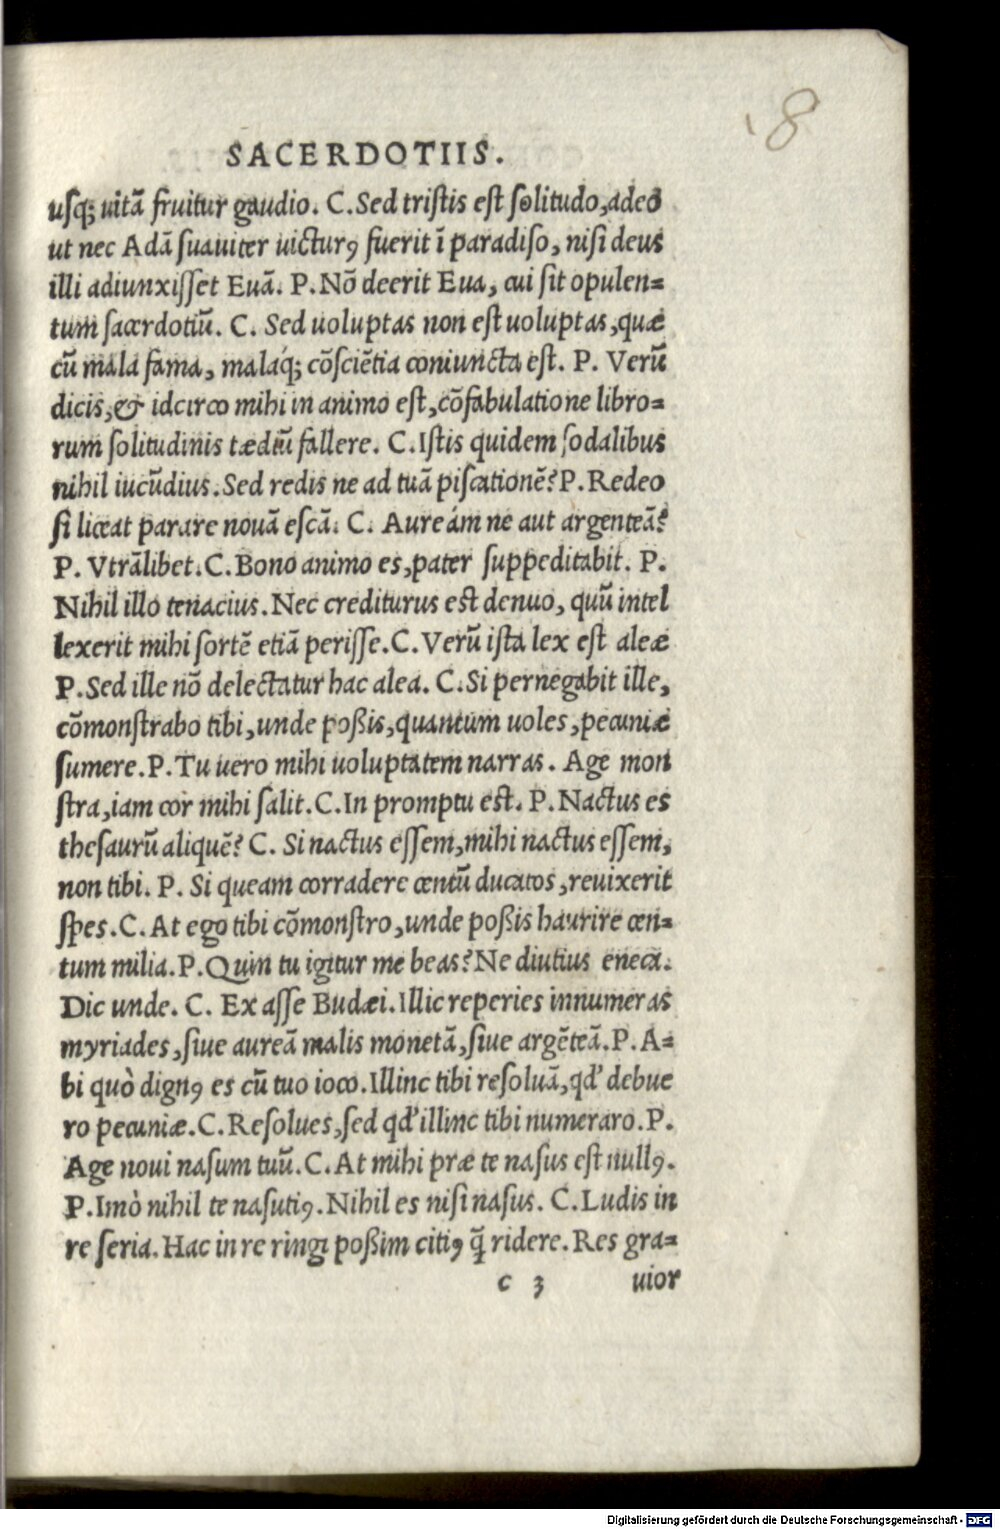 18
SACERDOTIIS.
uſq; uitã fruitur gaudio. C. Sed triſtis eſt ſolitudo, adeo
ut nec Adã ſuauiter uicturꝯ fuerit ĩ paradiſo, niſi deus
illi adiunxiſſet Euã. P. Nõ deerit Eua, cui ſit opulen=
tum ſacerdotiũ. C. Sed uoluptas non eſt uoluptas, quæ
cũ mala fama, malaq́; cõſciẽtia coniuncta eſt. P. Verũ
dicis, & idcirco mihi in animo eſt, cõfabulatione libro=
rum ſolitudinis tædiũ fallere. C. Iſtis quidem ſodalibus
nihil iucũdius. Sed redis ne ad tuã piſcationẽ? P. Redeo
ſi liceat parare nouã eſcã. C. Aureám ne aut argenteã?
P. Vtrãlibet. C. Bono animo es, pater ſuppeditabit. P.
Nihil illo tenacius. Nec crediturus est denuo, quũ intel
lexerit mihi ſortẽ etiã periſſe. C. Verũ iſta lex eſt aleæ
P. Sed ille nõ delectatur hac alea. C. Si pernegabit ille,
cõmonſtrabo tibi, unde poßis, quantum uoles, pecuniæ
ſumere. P. Tu uero mihi uoluptatem narras. Age mon
ſtra, iam cor mihi ſalit. C. In promptu est. P. Nactus es
theſaurũ aliquẽ? C. Si nactus eſſem, mihi nactus eſſem,
non tibi. P. Si queam corradere centũ ducatos, reuixerit
ſpes. C. At ego tibi cõmonſtro, unde poßis haurire cen=
tum milia. P. Quin tu igitur me beas? Ne diutius eneca.
Dic unde. C. Ex aſſe Budæi. Illic reperies innumeras
myriades, ſiue aureã malis monetã, ſiue argẽteã. P. A=
bi quò dignꝯ es cũ tuo ioco. Illinc tibi reſoluã, qd' debue
ro pecuniæ. C. Reſolues, ſed qd' illinc tibi numeraro. P.
Age noui naſum tuũ. C. At mihi præ te naſus eſt nullꝯ.
P. Imò nihil te naſutiꝯ. Nihil es niſi naſus. C. Ludis in
re ſeria. Hac in re ringi poßim citiꝯ q̃ ridere. Res gra=
c 3 uior
Digitalisierung gefördert durch die Deutsche Forschungsgemeinschaft - DFG